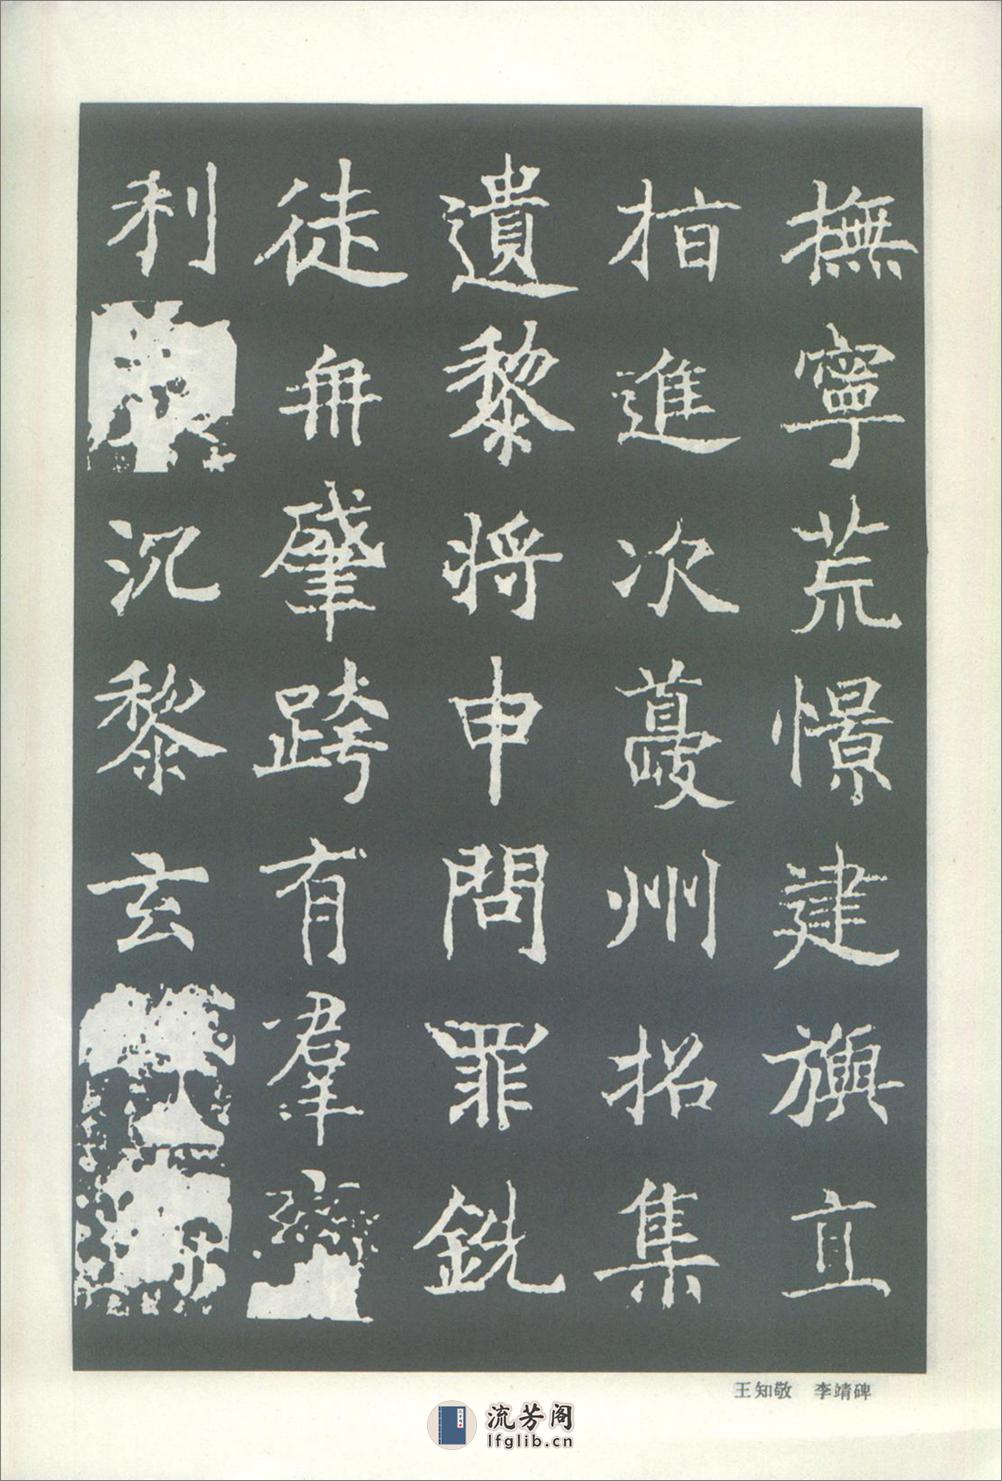 撫寧荒憬建旟立
指進次蘷州招集
遺黎將申問罪銑
徒舟肇跨有羣
利沉黎玄
王知敬 李靖碑
流芳阁
lfglib.cn